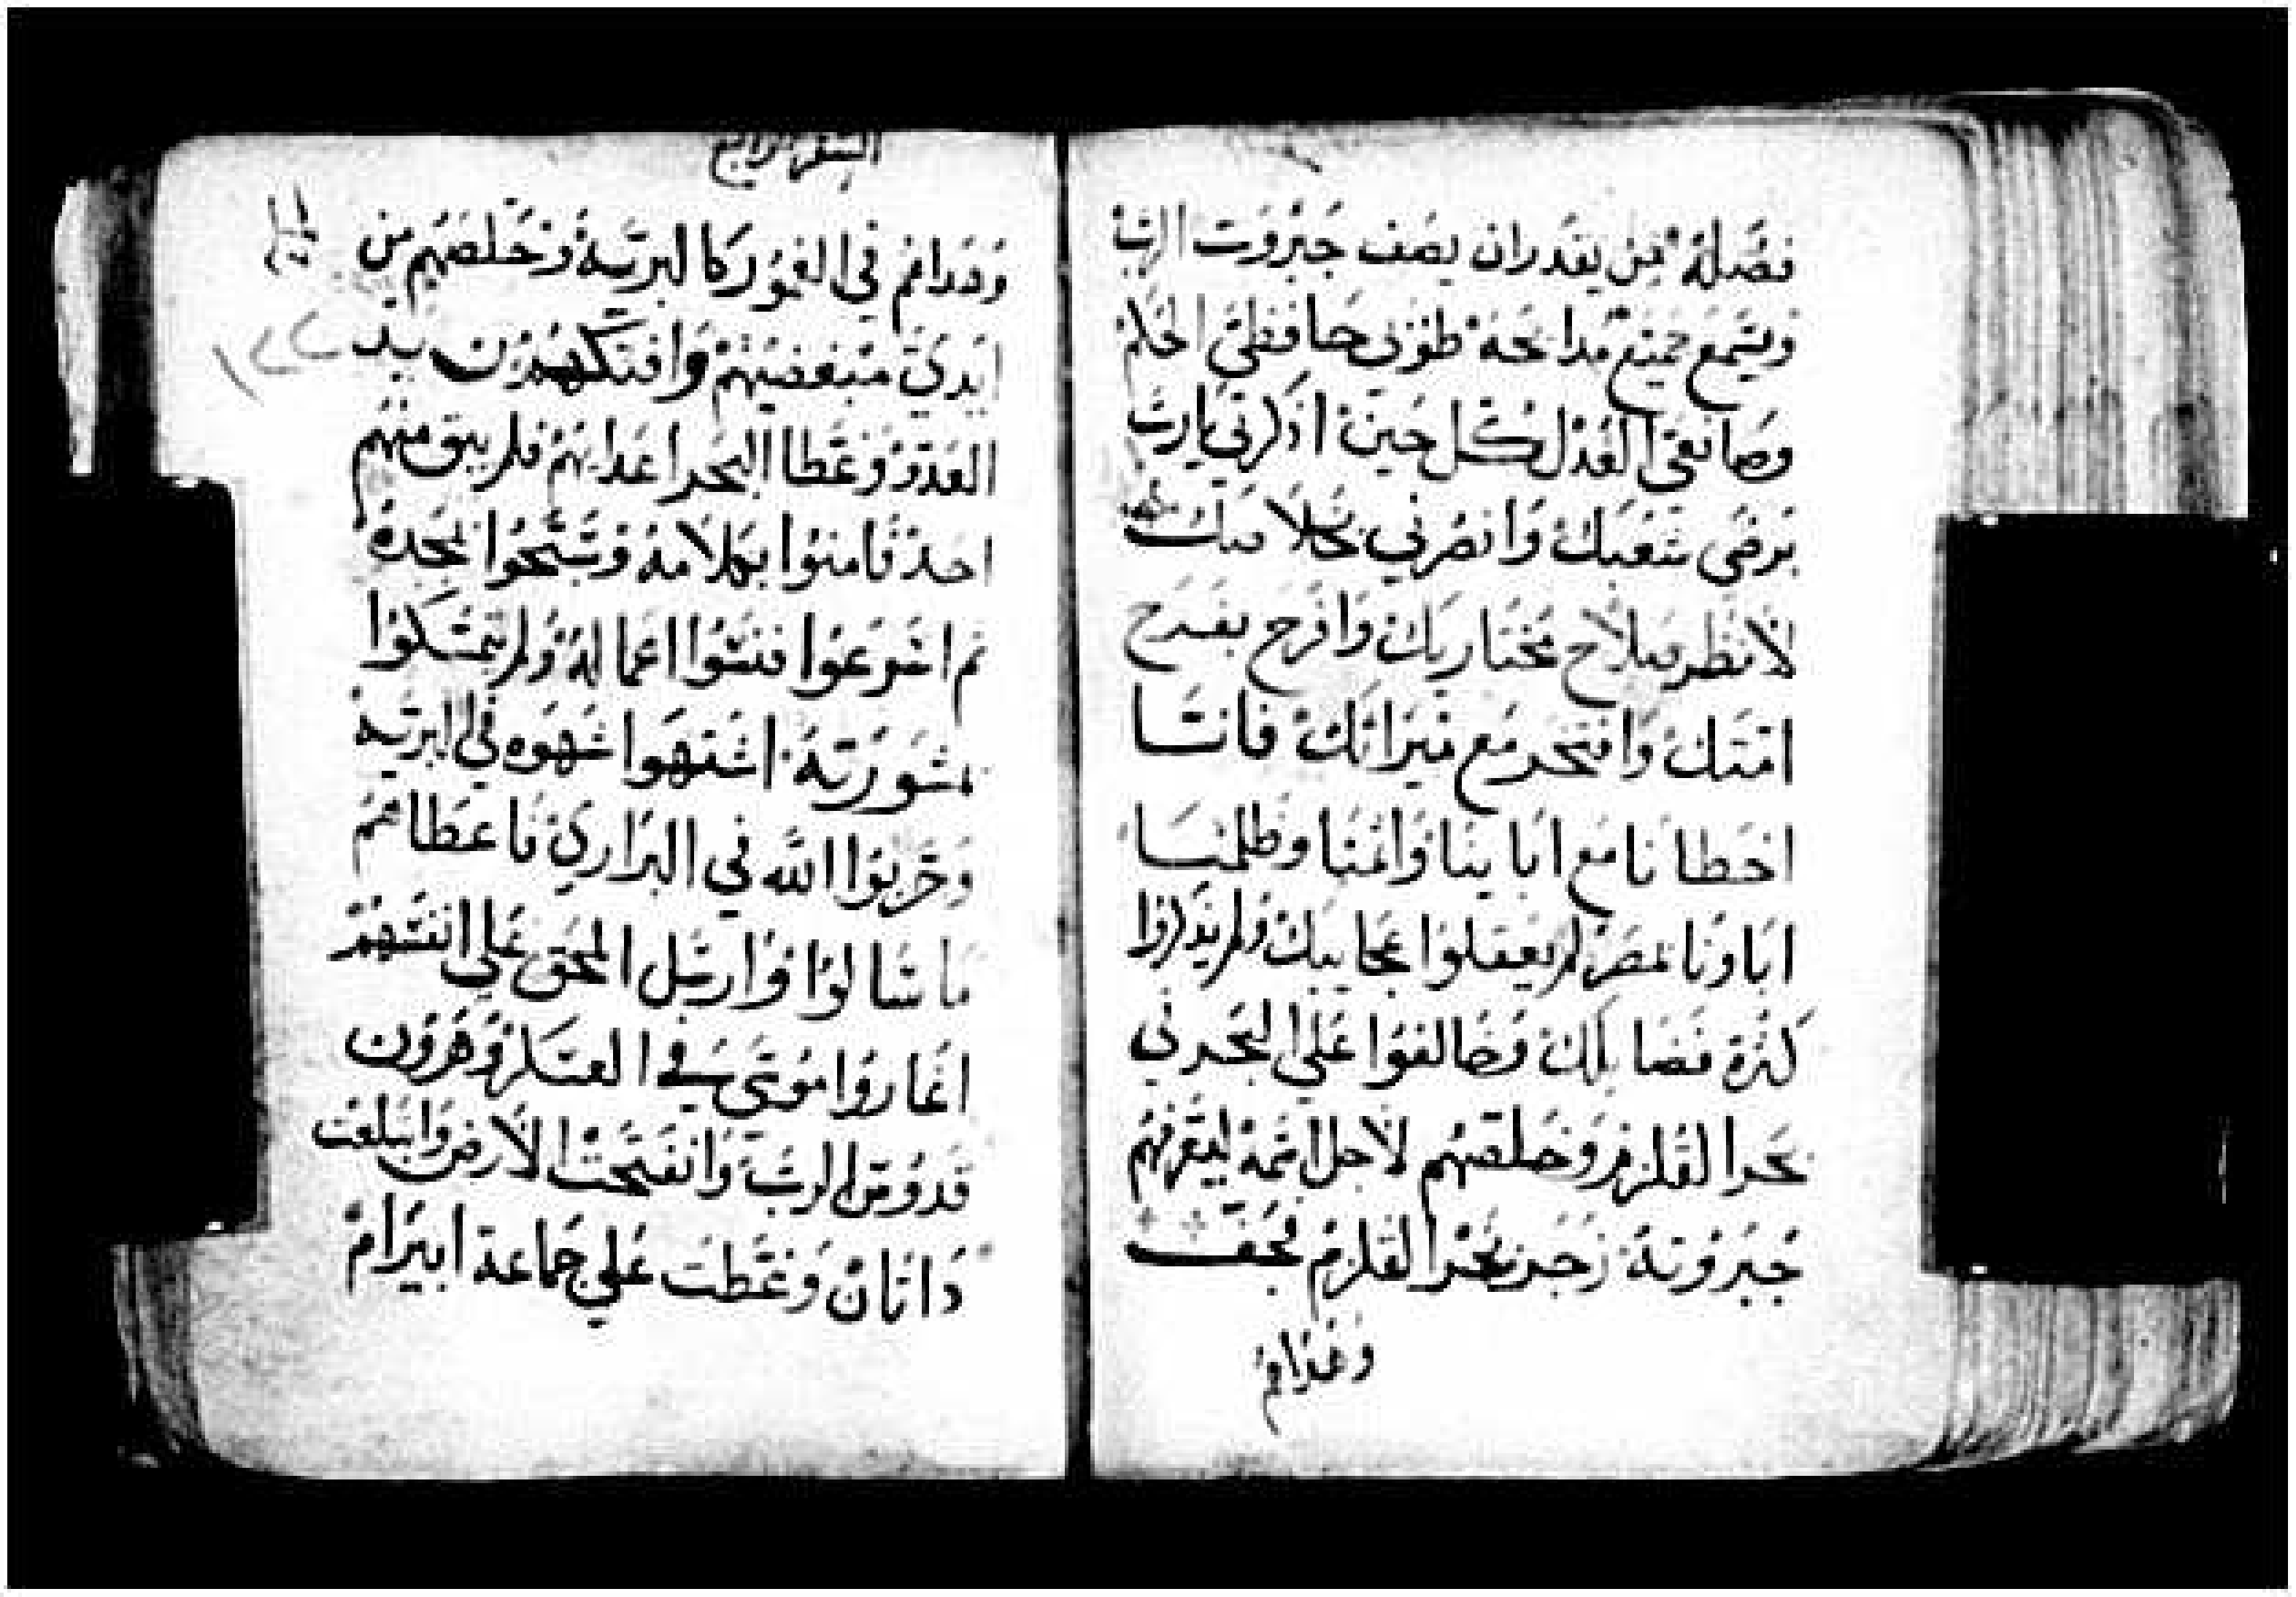 فضله من يقدر ان يصف جبروت الرب
ويسمع جميع مدايحه طوبي حافظي الحكم
وصانعي العدل كل حين اذكرني يارب
برضي شعبك وانصرني بخلاصك
لانظر صلاح مختاريك وافرح بفرح
امتك وافتخر مع ميراثك فاننا
اخطانا مع اباينا واثمنا وظلمنا
اباونا بمصر لم يعقلوا عجايبك ولم يذكروا
كثرة فضايلك وخالفوا علي البحر في
بحر القلزم وخلصهم لاجل اسمه ليعرفهم
جبروته زجر بحر القلزم فجف
وهداهم
السفر الرابع
وهداهم في الغور كالبرية وخلصهم من
ايدي مبغضيهم وافتكهم من يد
العدو وغطا البحر اعداهم فلم يبق منهم
احد فامنوا بكلامه وسبحوا بمجده
ثم اسرعوا فنسوا اعماله ولم يتمسكوا
بمشورته اشتهوا شهوه في البرية
وجربوا الله في البراري فاعطاهم
ما سالوا وارسل المحق علي انفسهم
اغاروا موسي في العسكر وهرون
قدوس الرب وانفتحت الارض وابتلعت
داثان وغطت علي جماعة ابيرام